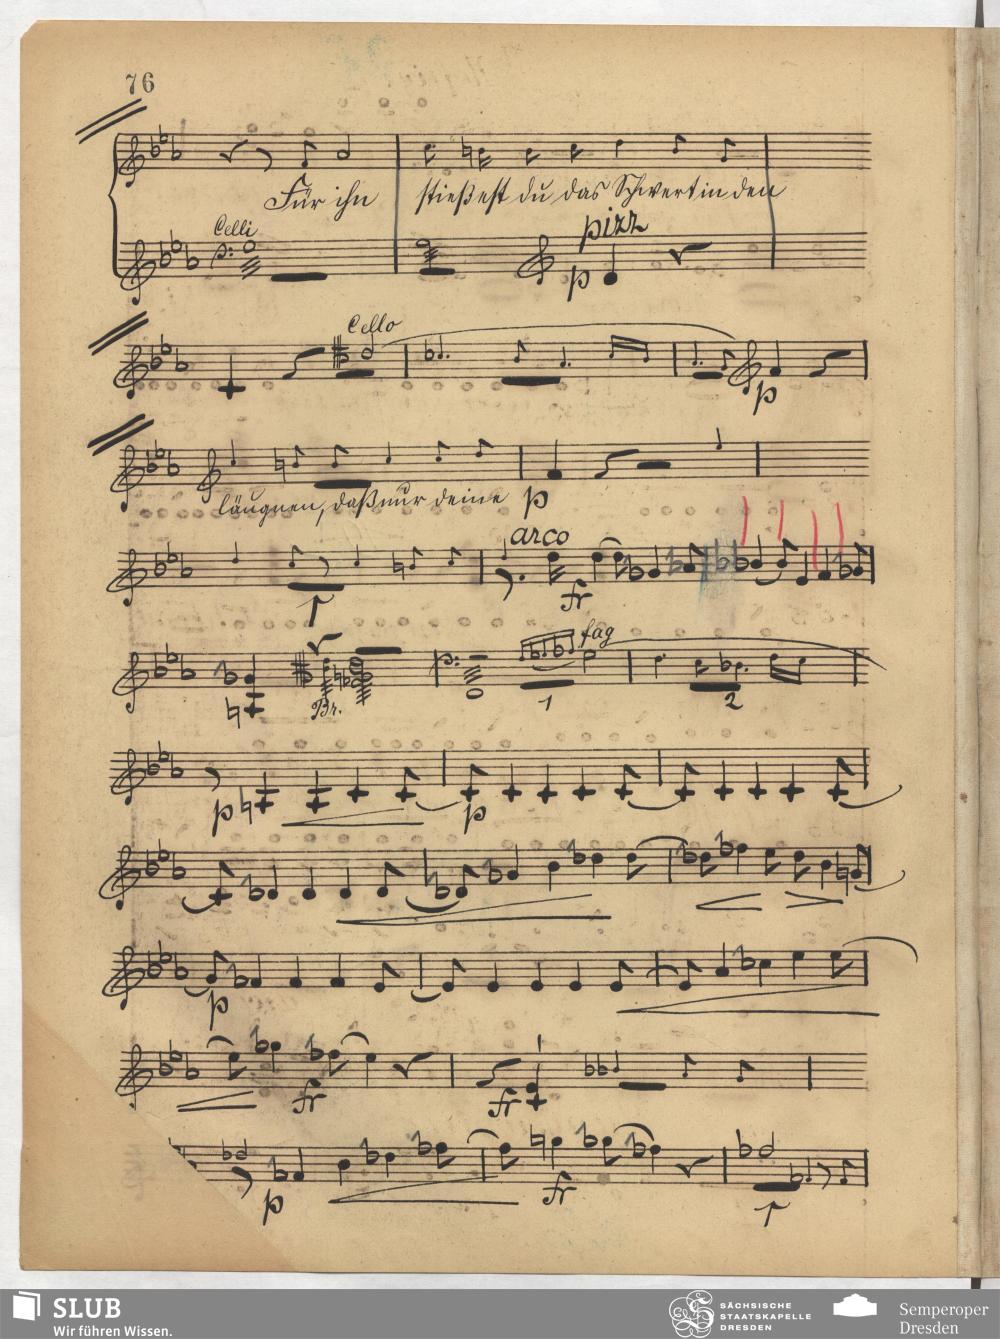 76
Für ihn stießest du das Schwert in den
Celli
pizz
p
Cello
p
läugnen, daß nur deine
p
arco
1
fr
fag
Br.
1
2
p
p
p
fr
fr
p
fr
1
SLUB
Wir führen Wissen.
SÄCHSISCHE
STAATSKAPELLE
DRESDEN
Semperoper
Dresden